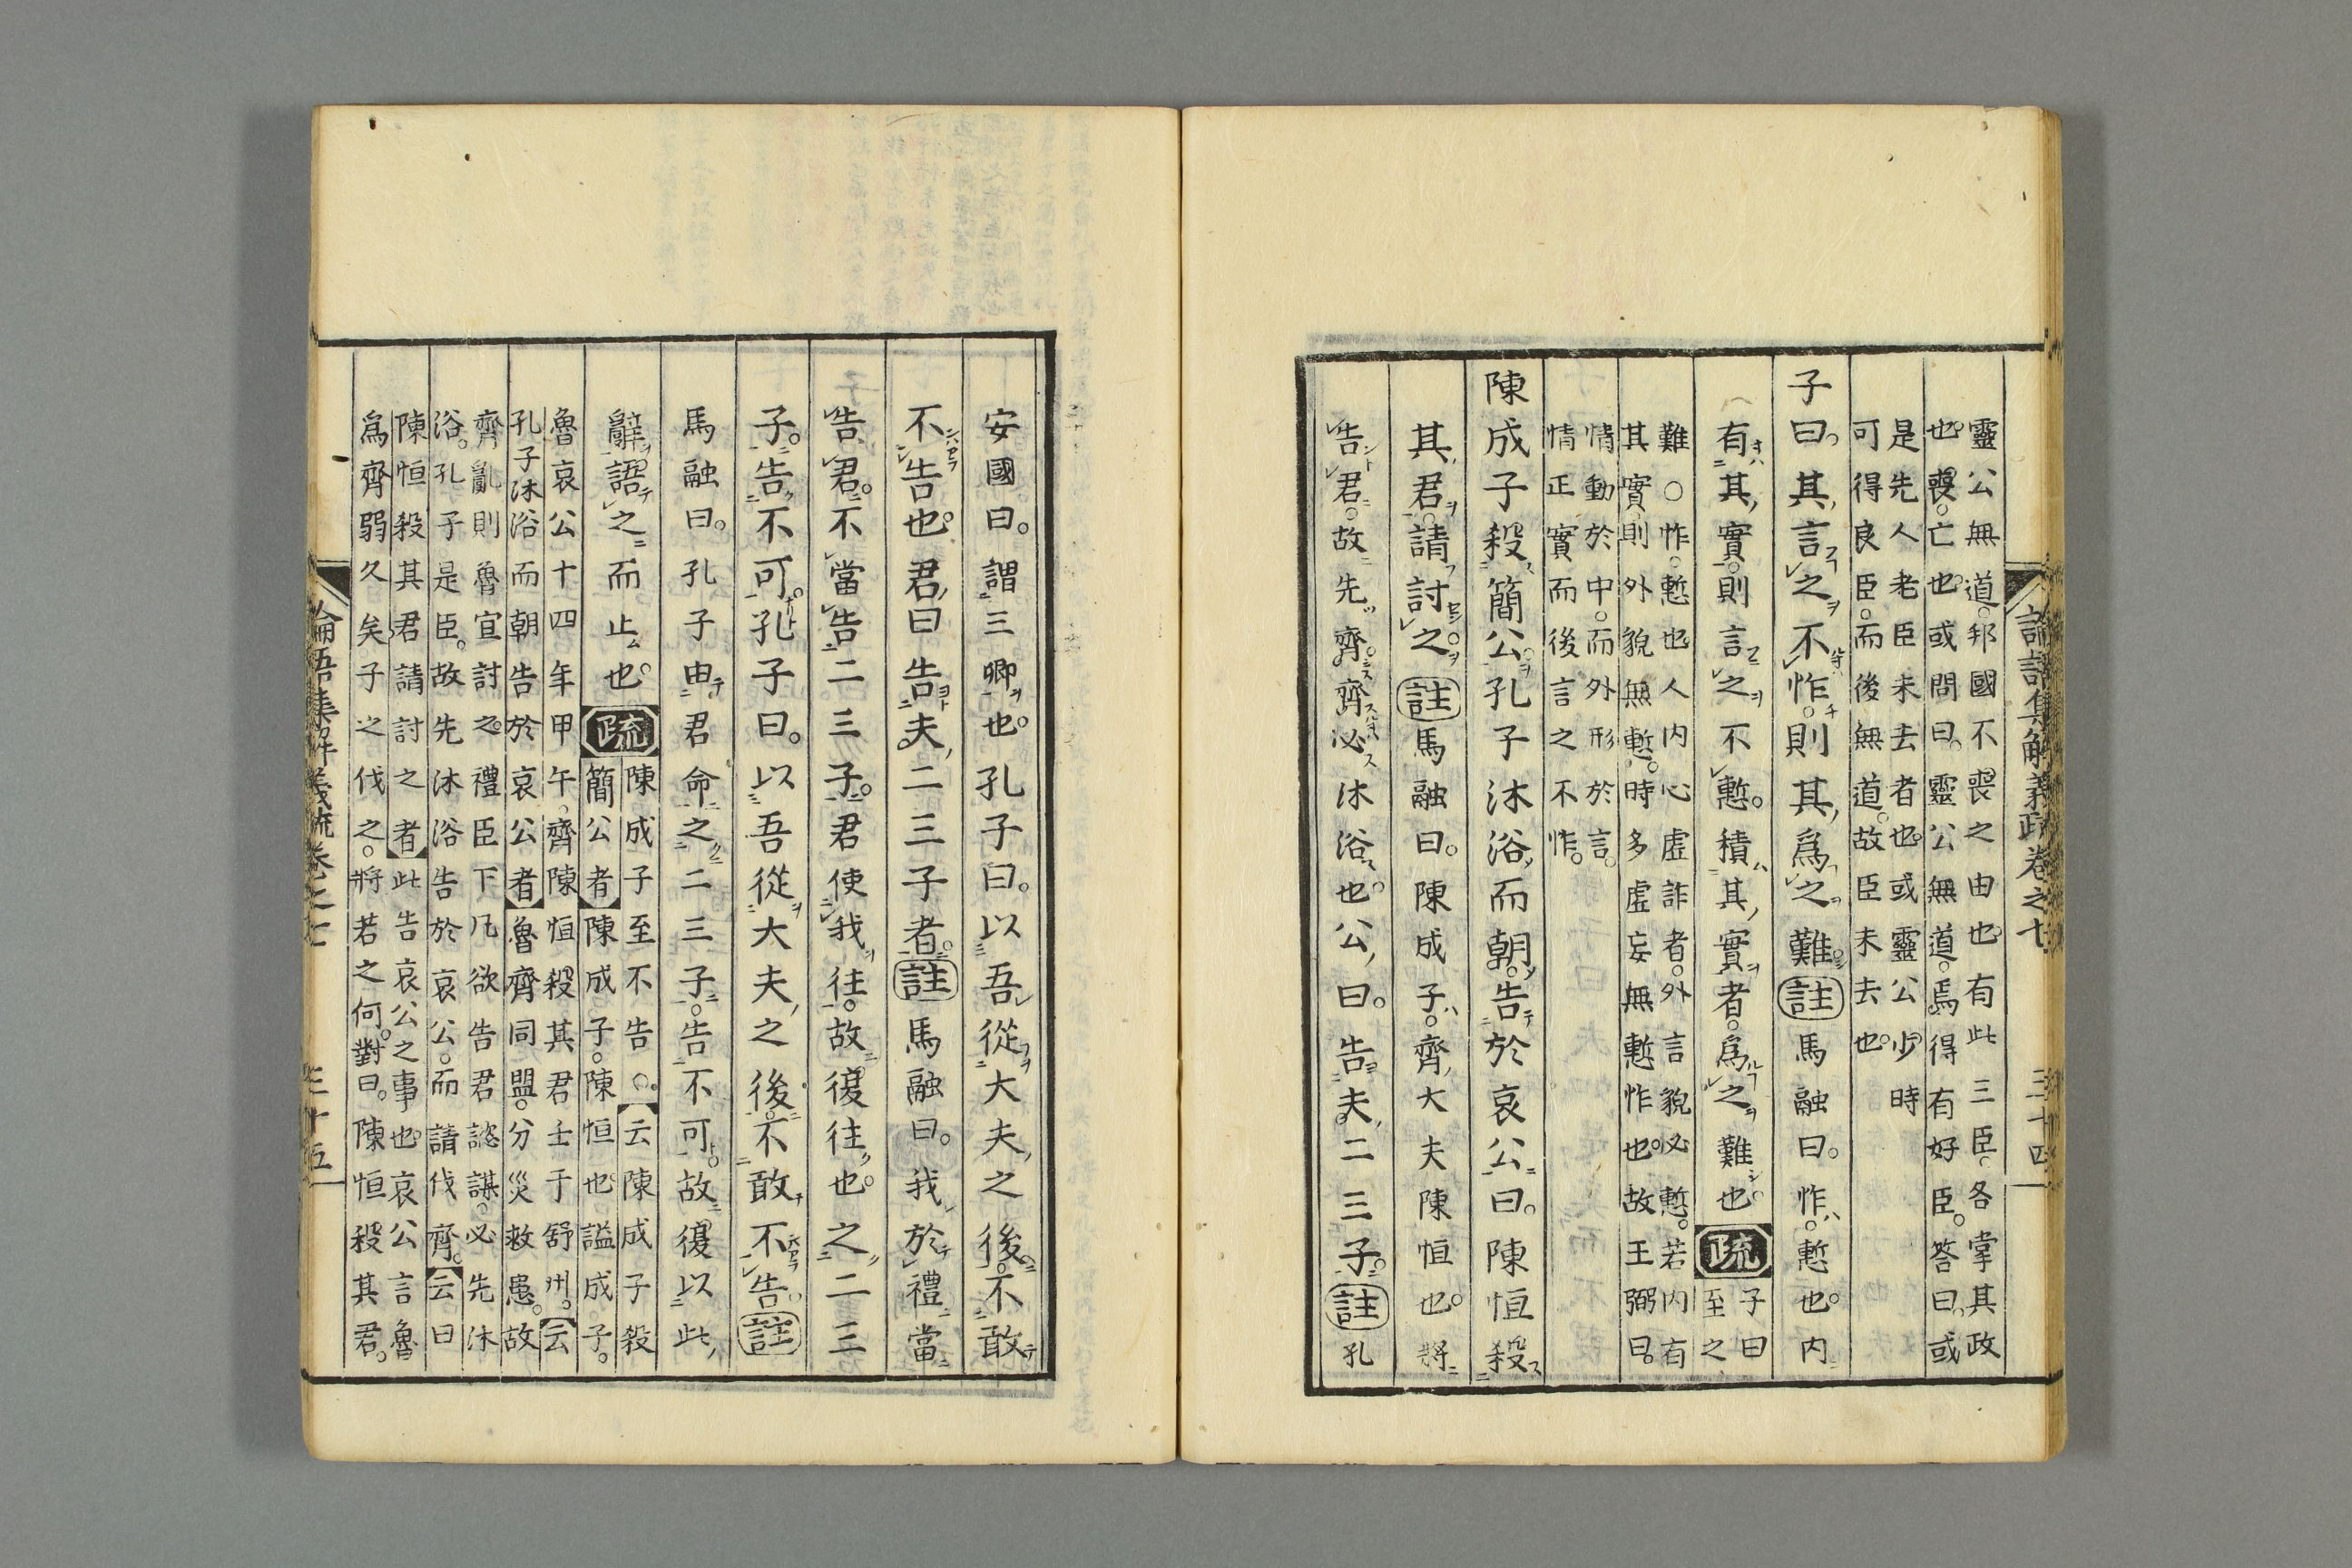 靈公無道。邦國不喪之由也。有此三臣。各掌其政
也。喪。亡也。或問曰。靈公無道。焉得有好臣。答曰。或
是先人老臣未去者也。或靈公少時
可得良臣。而後無道。故臣未去也。
子曰。其言之不怍。則其爲之難。註馬融曰。怍。慙也。内
有其實。則言之不慙。積其實者。爲之難也。疏子曰
至之
難○怍。慙也人内心虛詐者。外言貌必慙。若内有
其實。則外貌無慙。時多虛妄無慙怍也。故王弼曰。
情動於中。而外形於言。
情正實而後言之不怍。
陳成子殺簡公。孔子沐浴而朝。告於哀公曰。陳恒殺
其君。請討之。註馬融曰。陳成子。齊大夫陳恒也。將
告君。故先齊。齊必沐浴也。公曰。告夫二三子。註孔
論語集解義疏卷之七 三十四
安國曰。謂三卿也。孔子曰。以吾從大夫之後。不敢
不告也。君曰告夫二三子者。註馬融曰。我於禮當
告君。不當告二三子。君使我往。故復往也。之二三
子。告。不可。孔子曰。以吾從大夫之後。不敢不告註
馬融曰。孔子由君命之二三子。告不可。故復以此
辭語之而止也。疏陳成子至不告○云陳成子殺
簡公者陳成子。陳恒也。謚成子。
魯哀公十四年甲午。齊陳恒殺其君壬于舒州。云
孔子沐浴而朝告於哀公者魯齊同盟。分災救患。故
齊亂則魯宜討之。禮臣下凡欲告君諮謀。必先沐
浴。孔子是臣。故先沐浴告於哀公。而請伐齊。云曰
陳恒殺其君請討之者此告哀公之事也。哀公言魯
爲齊弱久矣子之伐之。將若之何。對曰。陳恒殺其君。
論語集解義疏卷之七 三十五